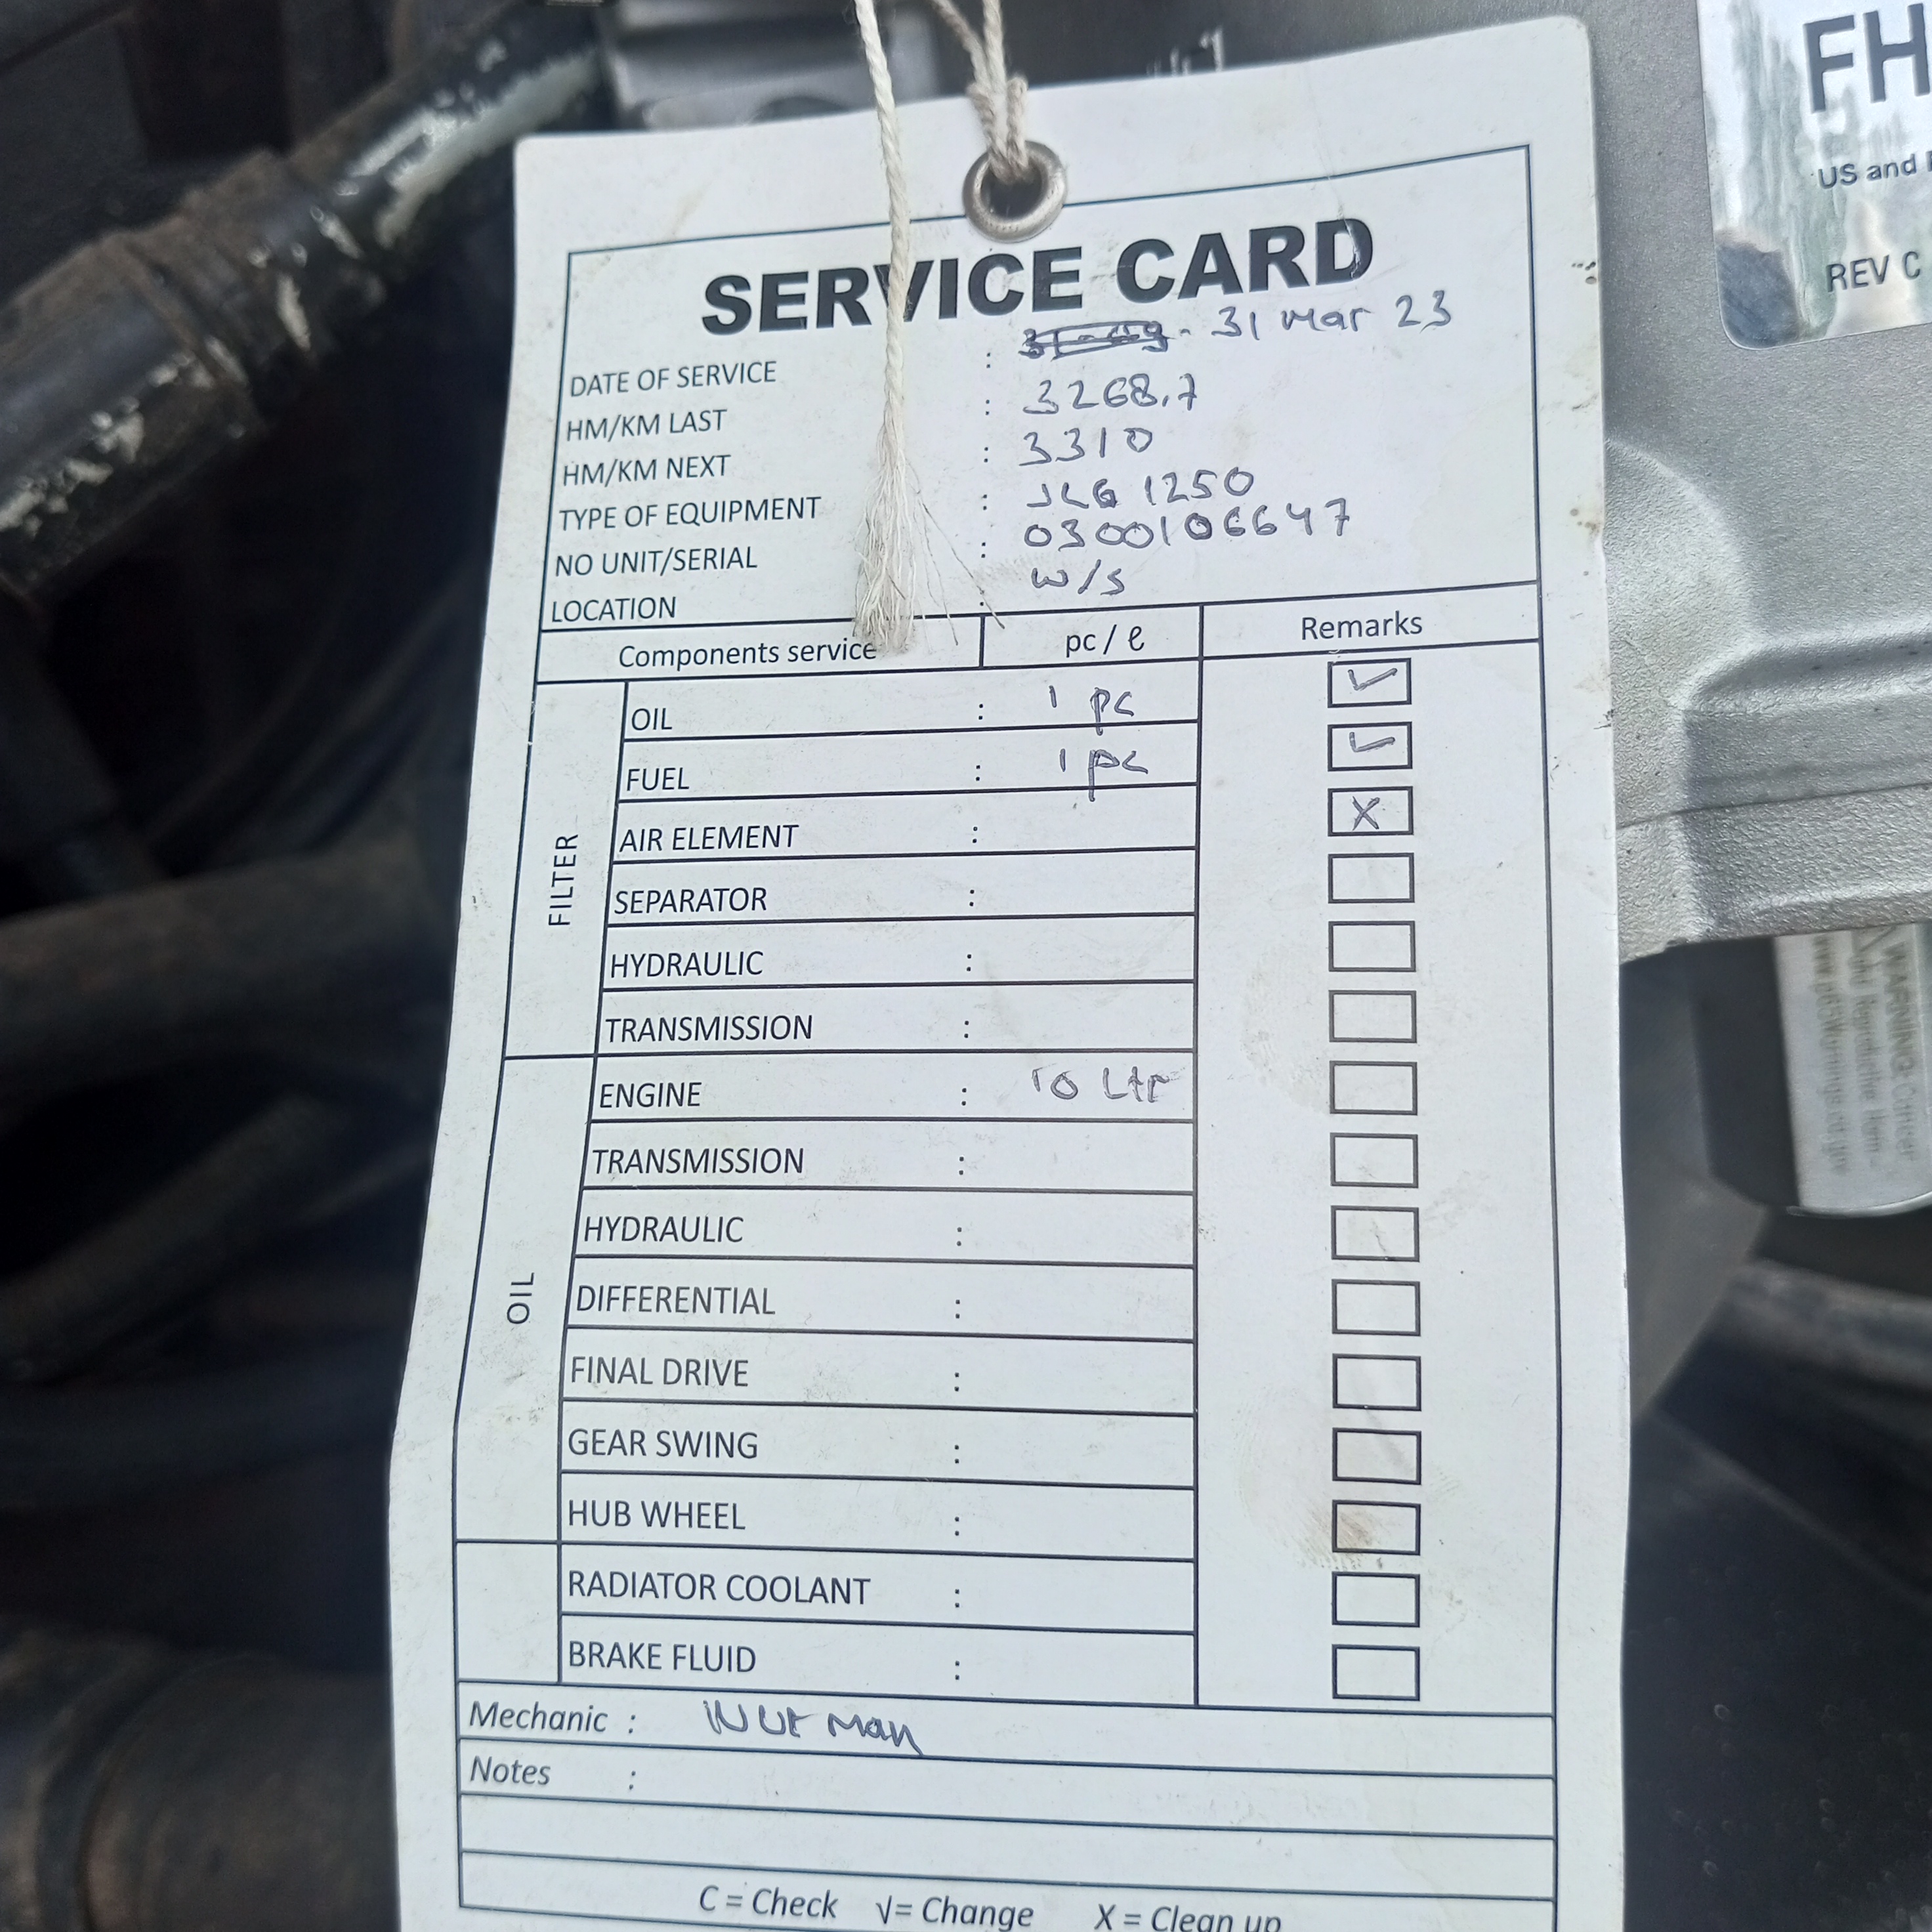 SERVICE CARD
DATE OF SERVICE : 31 Mar 23
HM/KM LAST : 3268.7
HM/KM NEXT : 3310
TYPE OF EQUIPMENT : JLG 1250
NO UNIT/SERIAL : 0300106647
LOCATION : W/S
Components service pc/ℓ Remarks
FILTER
OIL : 1 pc ✓
FUEL : 1 pc ✓
AIR ELEMENT : X
SEPARATOR :
HYDRAULIC :
TRANSMISSION :
OIL
ENGINE : 10 Ltr
TRANSMISSION :
HYDRAULIC :
DIFFERENTIAL :
FINAL DRIVE :
GEAR SWING :
HUB WHEEL :
RADIATOR COOLANT :
BRAKE FLUID :
Mechanic :
Notes :
C = Check √= Change X = Clean up
FH
US and
REV C
WARNING: Cancer
www.p65Warnings.ca.gov